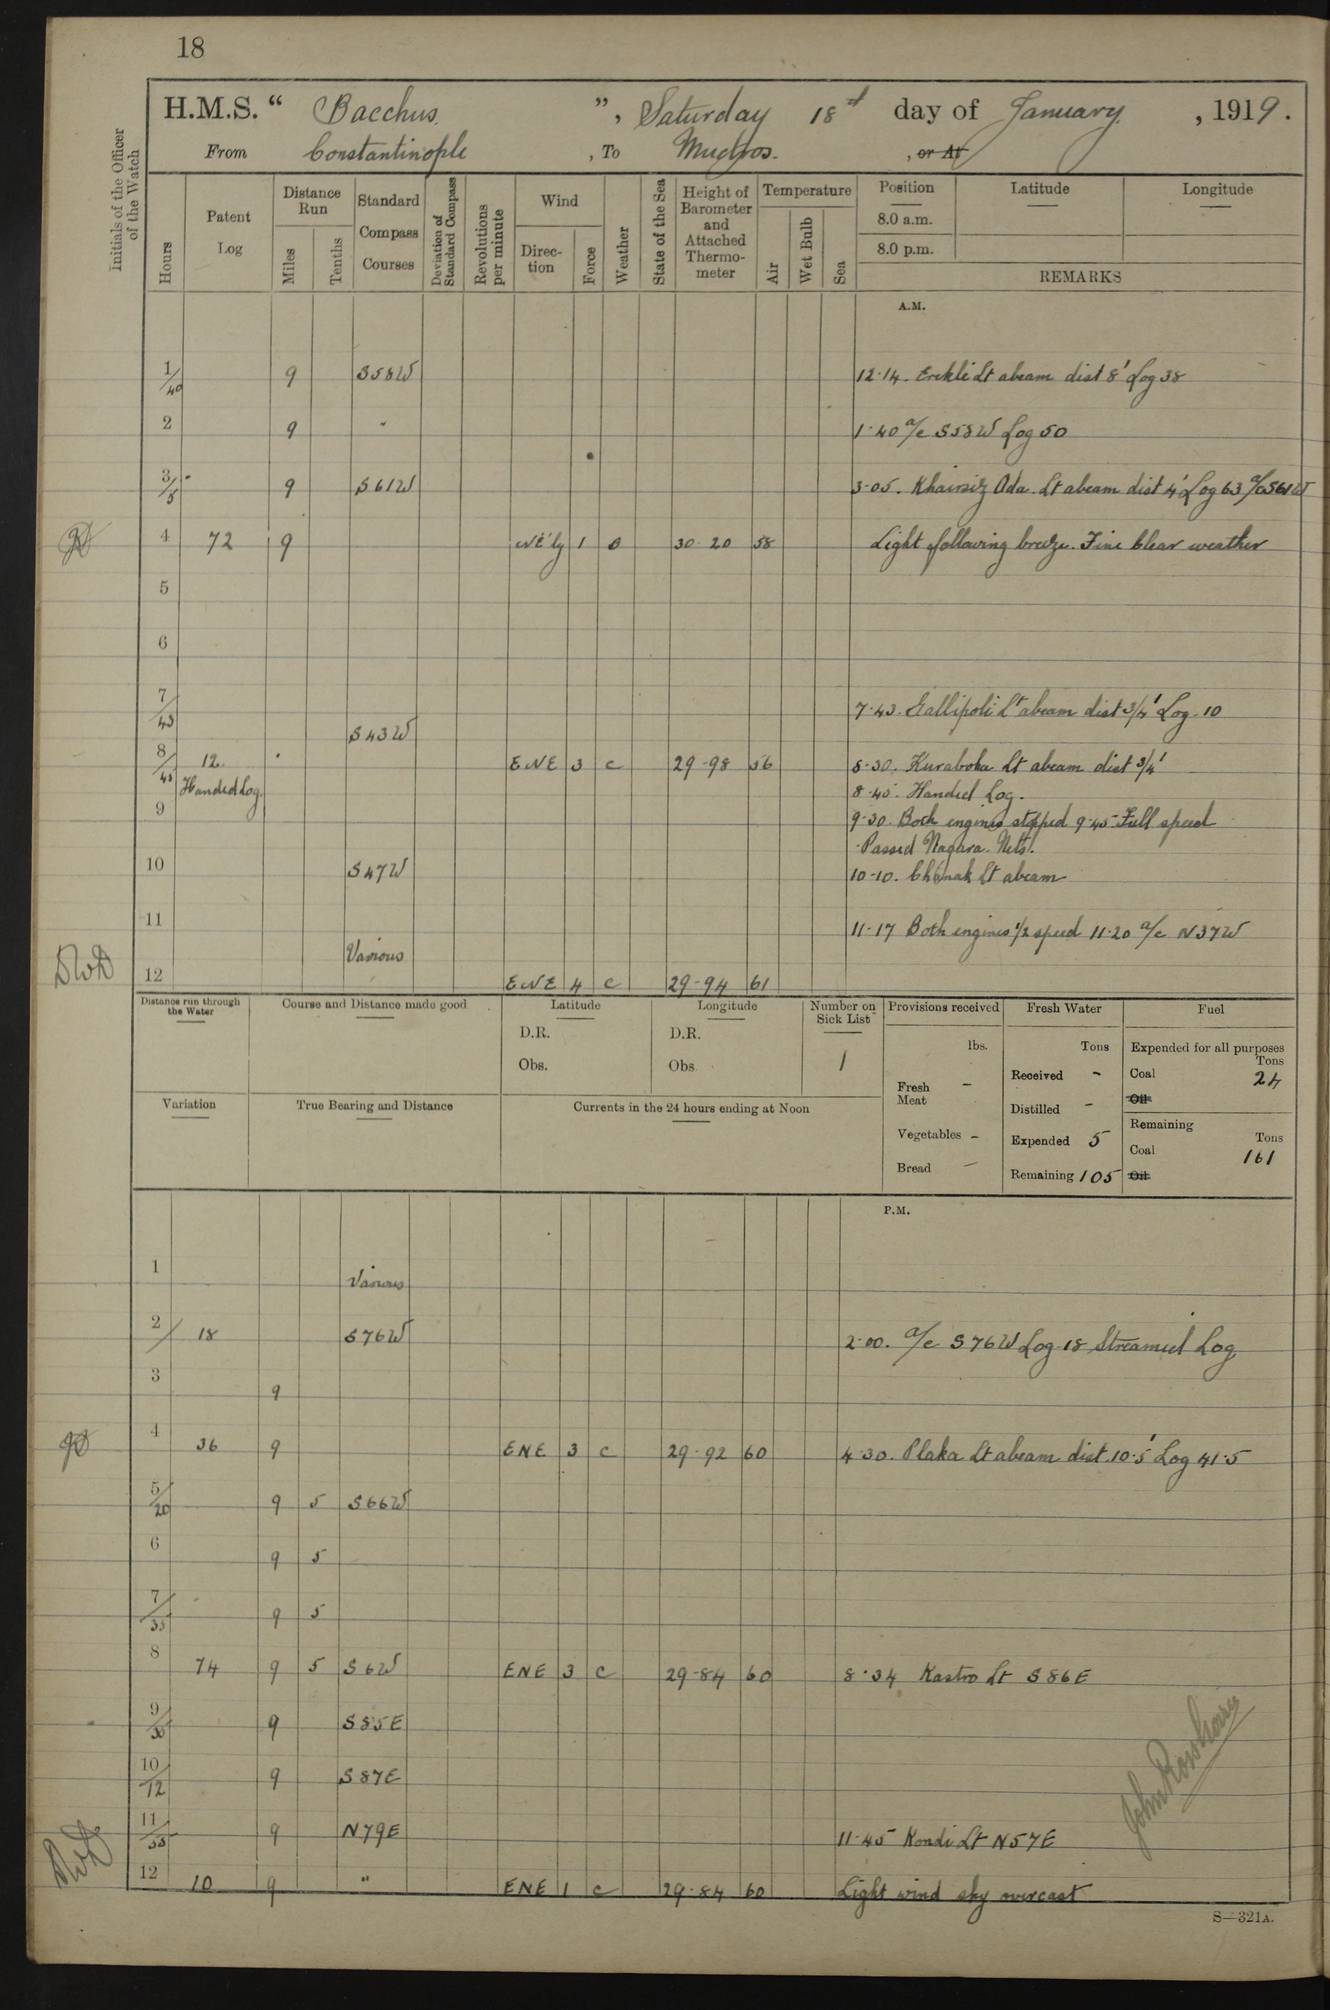 18
H.M.S. “ Bacchus ”, Saturday 18th day of January , 1919.
From Constantinople , To Mudros. , or At
Initials of the Officer of the Watch
Hours
Patent Log
Distance Run
Miles
Tenths
Standard Compass Courses
Deviation of Standard Compass
Revolutions per minute
Wind
Direction
Force
Weather
State of the Sea
Height of Barometer and Attached Thermometer
Temperature
Air
Wet Bulb
Sea
Position
8.0 a.m.
8.0 p.m.
Latitude
Longitude
REMARKS
A.M.
1/40 9 S58W 12·14. Erekli Lt abeam dist 8' Log 38
2 9 " 1·40 a/c S58W Log 50
3/5 9 S61W 3·05. Khairsiz Ada. Lt abeam dist 4' Log 63 a/c S61W
4 72 9 NE'ly 1 o 30·20 58 Light following breeze. Fine Clear weather
5
6
7/43 S43W 7·43. Gallipoli Lt abeam dist 3/4' Log 10
8/45 12. ENE 3 c 29·98 56 8·30. Karaboka Lt abeam dist 3/4'
Handed Log. 8·45. Handed Log.
9 9·30. Both engines stopped 9·45 Full speed
Passed Nagara. Nets.
10 S47W 10·10. Chanak Lt abeam
11 11·17 Both engines 1/2 speed 11·20 a/c N37W
Various
DWD 12 ENE 4 c 29·94 61
Distance run through the Water
Course and Distance made good
Latitude
D.R.
Obs.
Longitude
D.R.
Obs.
Number on Sick List
1
Provisions received
lbs.
Fresh Meat –
Vegetables –
Bread –
Fresh Water
Tons
Received –
Distilled –
Expended 5
Remaining 105
Fuel
Expended for all purposes
Tons
Coal 24
Oil
Remaining
Tons
Coal 161
Oil
Variation
True Bearing and Distance
Currents in the 24 hours ending at Noon
P.M.
1 Various
2/ 18 S76W 2·00. a/c S76W Log 18 Streamed Log
3 9
4 36 9 ENE 3 c 29·92 60 4·30. Plaka Lt abeam dist. 10·5' Log 41·5
5/20 9 5 S66W
6 9 5
7/35 9 5
8 74 9 5 S6W ENE 3 c 29·84 60 8·34 Kastro Lt S86E
9/30 9 S85E
10/12 9 S87E
11/55 9 N79E 11·45 Kondi Lt N57E
DWD 12 10 9 " ENE 1 c 29·84 60 Light wind sky overcast
S—321A.